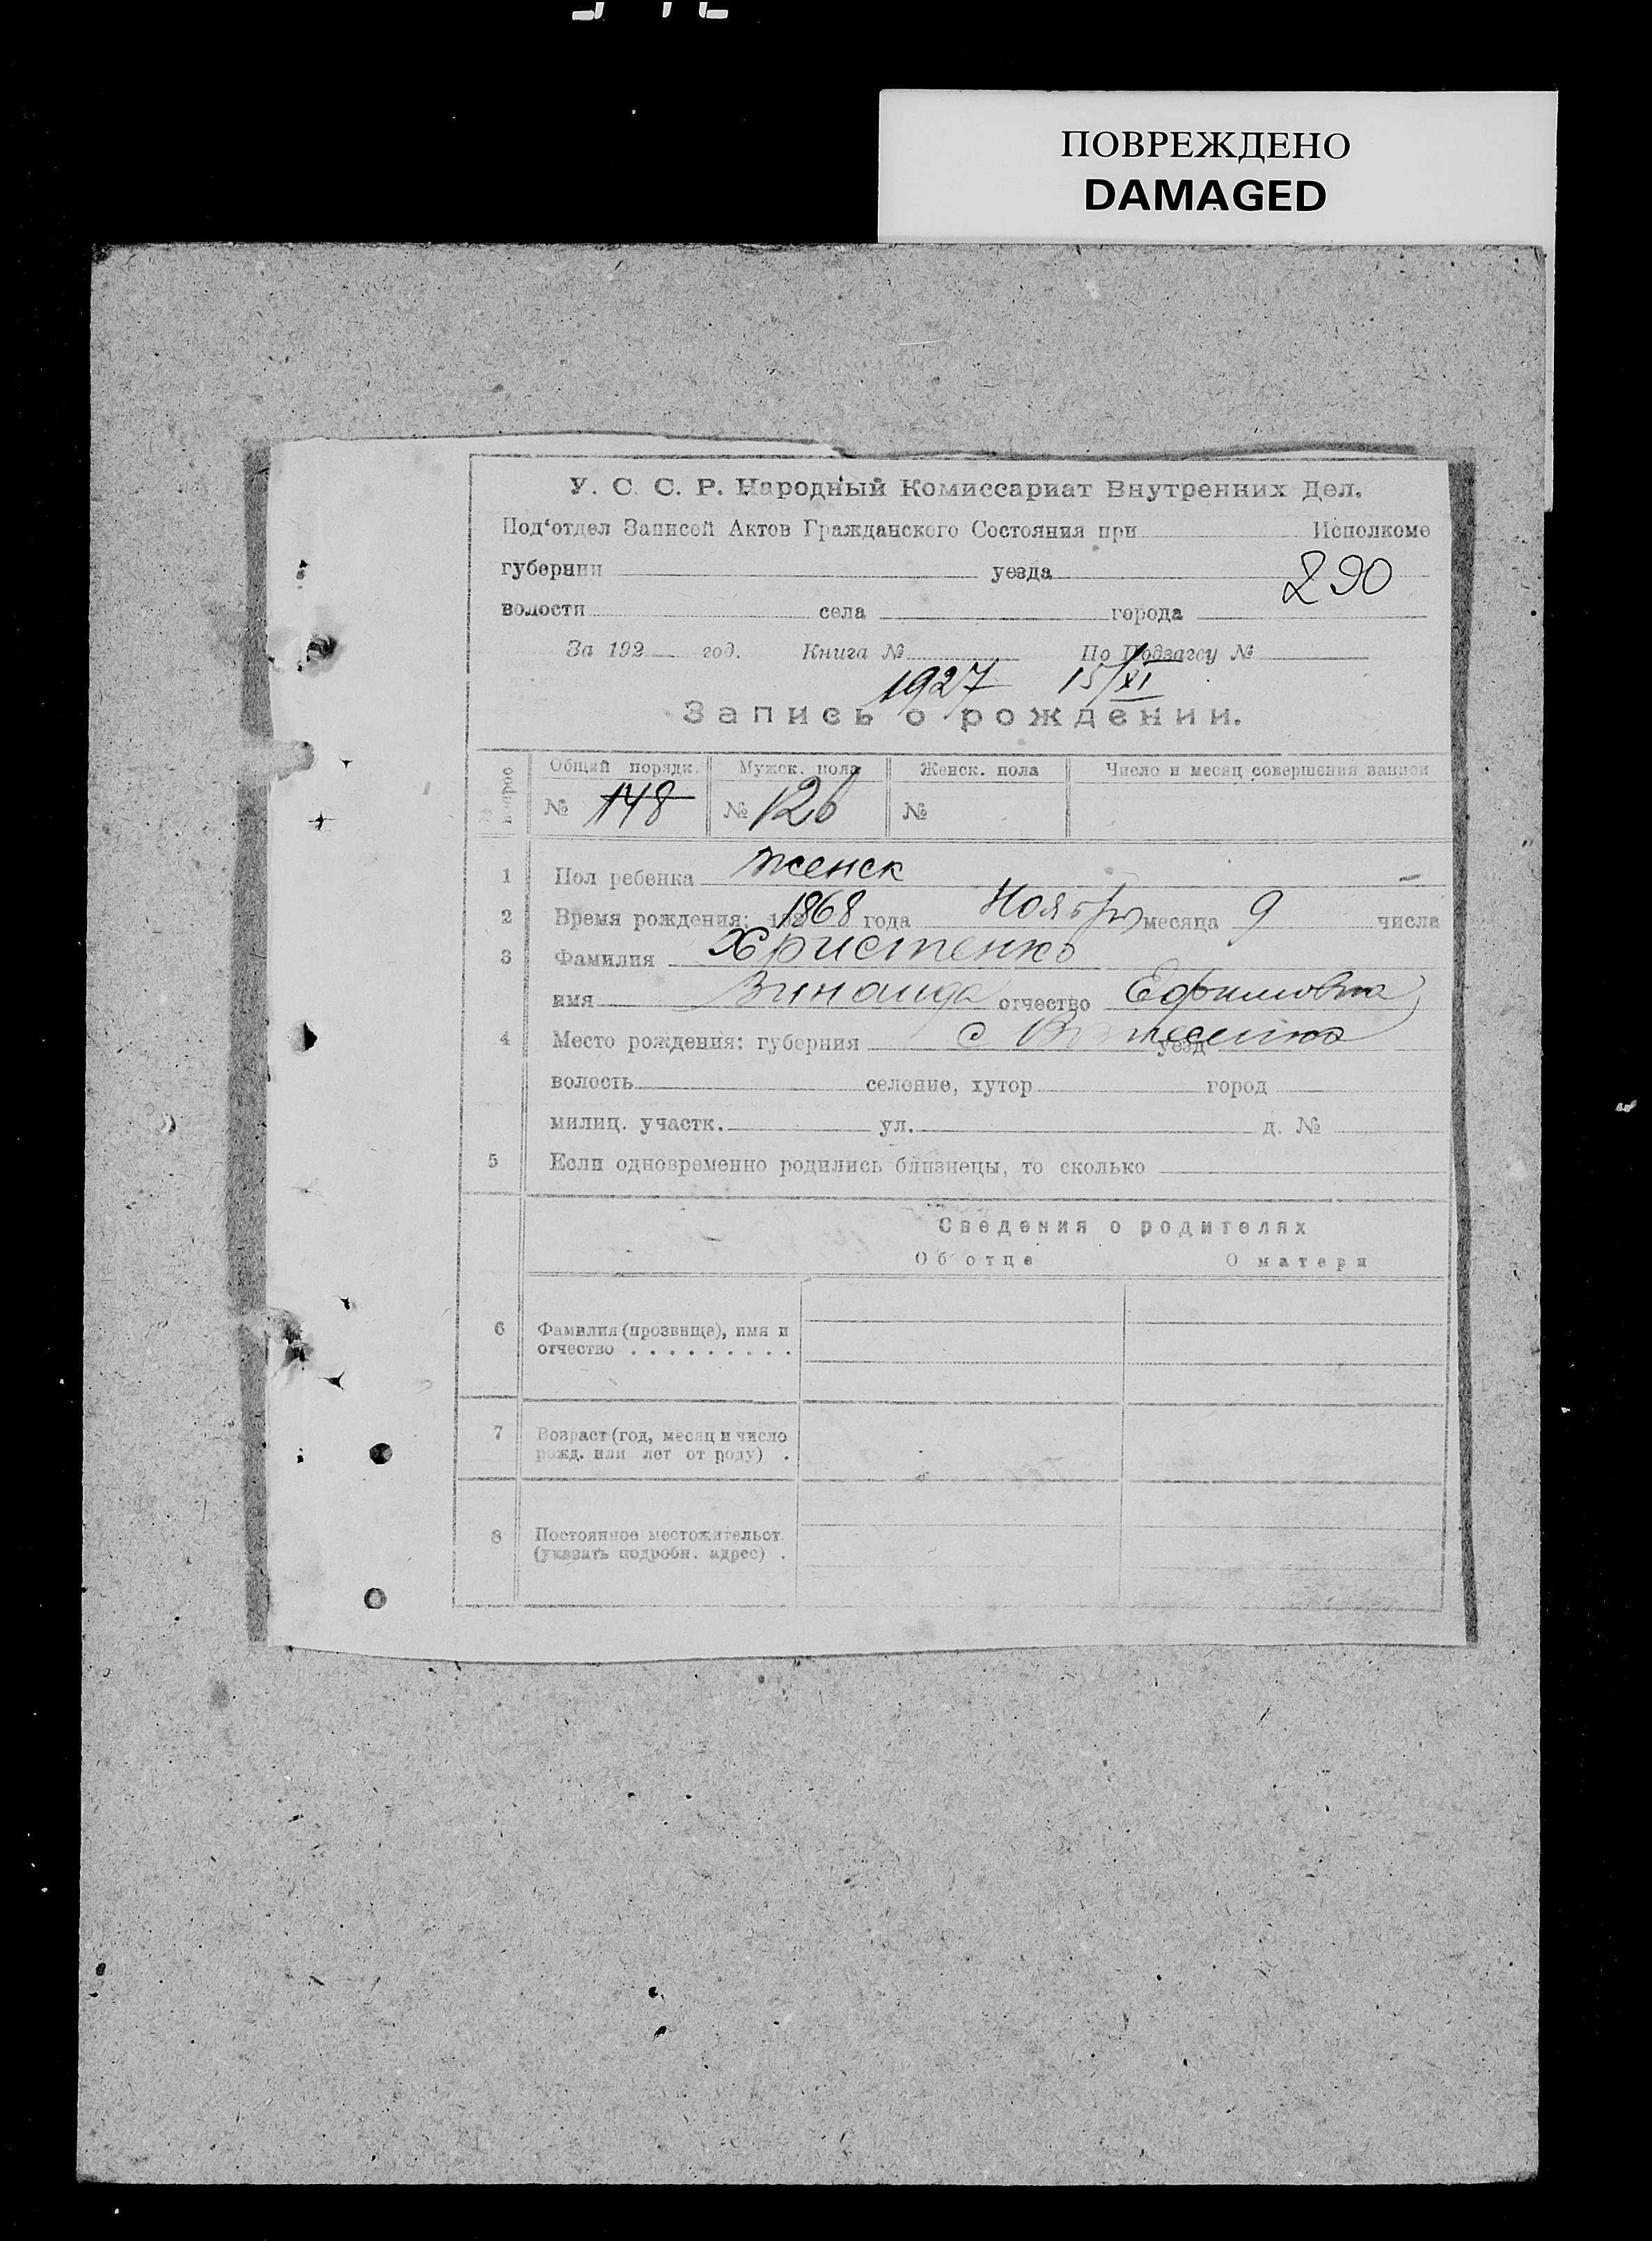 ПОВРЕЖДЕНО
DAMAGED
У. С. С. Р. Народный Комиссариат Внутренних Дел.
Под‘отдел Записей Актов Гражданского Состояния при Исполкоме
губернии уезда
290
волости села города
За 192 год. Книга № По Подзагсу №
1927 15/XI
Запись о рождении.
вопрос Общий порядк. Мужск. пола Женск. пола Число и месяц совершения записи
№ 148 № 126 №
1 Пол ребенка женск
2 Время рождения: 1868 года Ноября месяца 9 числа
3 Фамилия Христенко
имя Зинаида отчество Ефимовна
4 Место рождения: губерния с уезд
волость селение, хутор город
милиц. участк. ул. д. №
5 Если одновременно родились близнецы, то сколько
Сведения о родителях
Об отце О матери
6 Фамилия (прозвище), имя и
отчество . . . . . . . . .
7 Возраст (год, месяц и число
рожд. или лет от роду) .
8 Постоянное местожительст.
(указать подробн. адрес) .